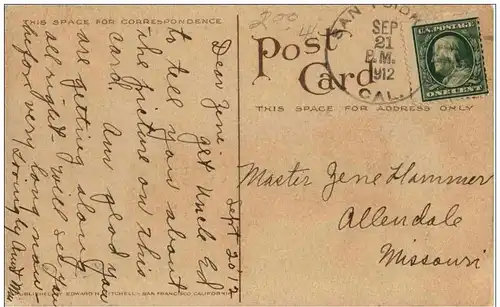 THIS SPACE FOR CORRESPONDENCE
Sept 20 '12
Dear Zene -
get Uncle Ed
to tell you about
the picture on this
card. Am glad you
are getting along
all right - will see you
before very long now
Lovingly Aunt
PUBLISHED BY EDWARD H. MITCHELL, SAN FRANCISCO, CALIFORNIA
200
Post
Card
THIS SPACE FOR ADDRESS ONLY
SAN
SEP
21
P.M.
1912
CAL.
U.S. POSTAGE
ONE CENT
Master Zene Hammer
Allendale
Missouri